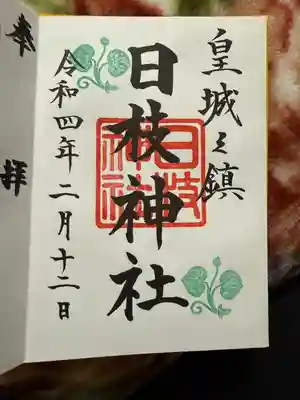 皇城之鎮
日枝神社
日枝神社
令和四年二月十二日
奉拝